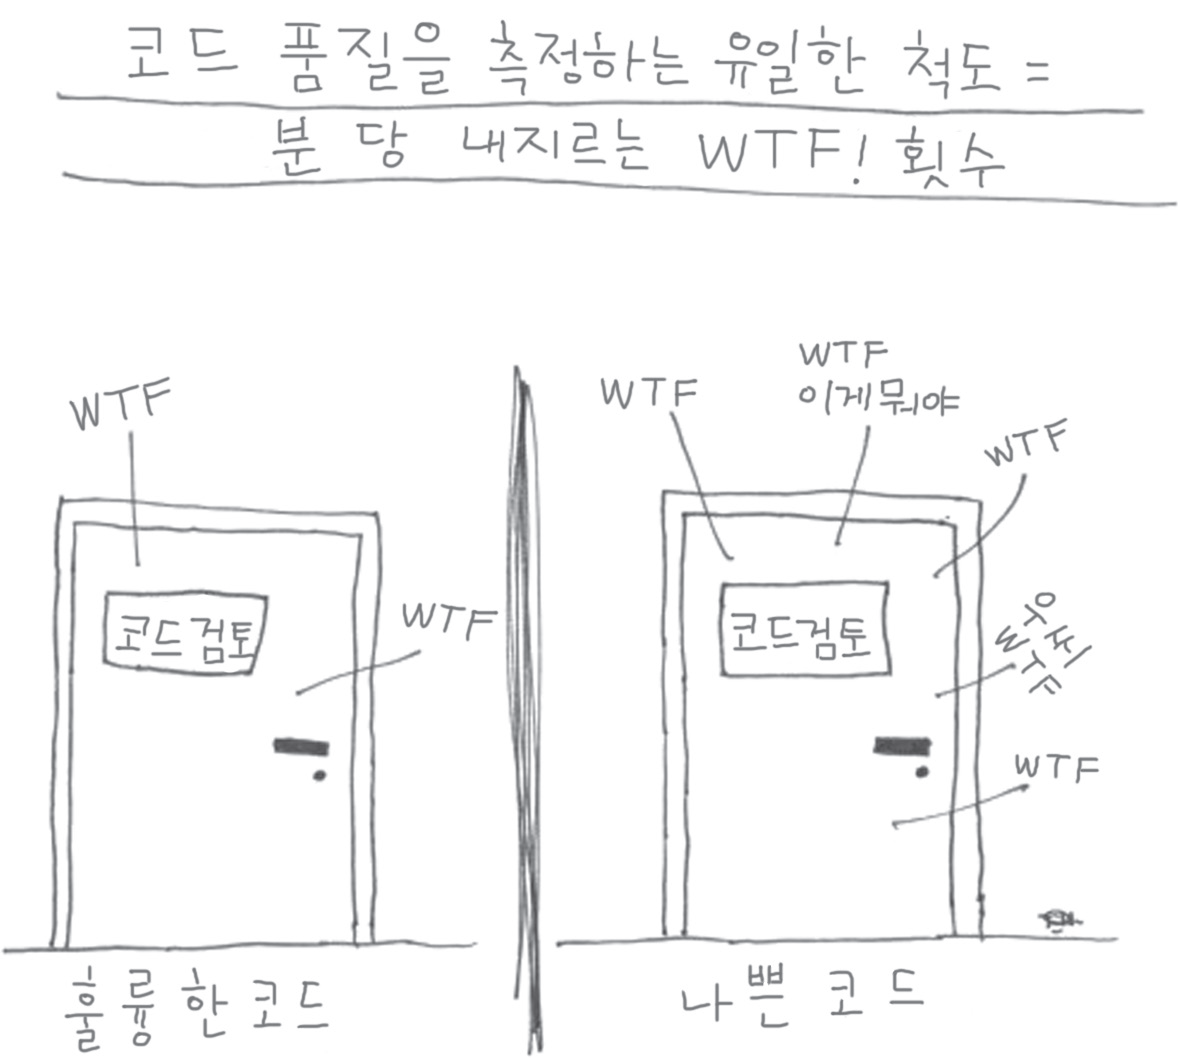 코드 품질을 측정하는 유일한 척도 =
분 당 내지르는 WTF! 횟수
WTF
코드검토
WTF
훌륭한코드
WTF
WTF
이게뭐야
WTF
코드검토
우씨
WTF
WTF
나쁜 코드